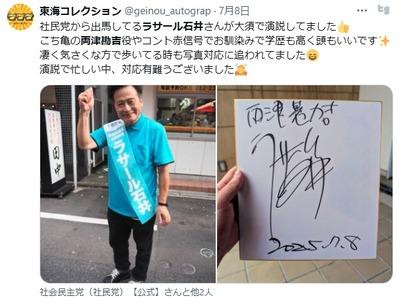 東海コレクション @geinou_autograp · 7月8日
社民党から出馬してるラサール石井さんが大須で演説してました👍
こち亀の両津勘吉役やコント赤信号でお馴染みで学歴も高く頭もいいです✨
凄く気さくな方で歩いてる時も写真対応に追われてました😄
演説で忙しい中、対応有難うございました🙇
田中
ラサール石井
両津勘吉
ラサール
石井
2025.7.8
社会民主党（社民党）【公式】さんと他2人